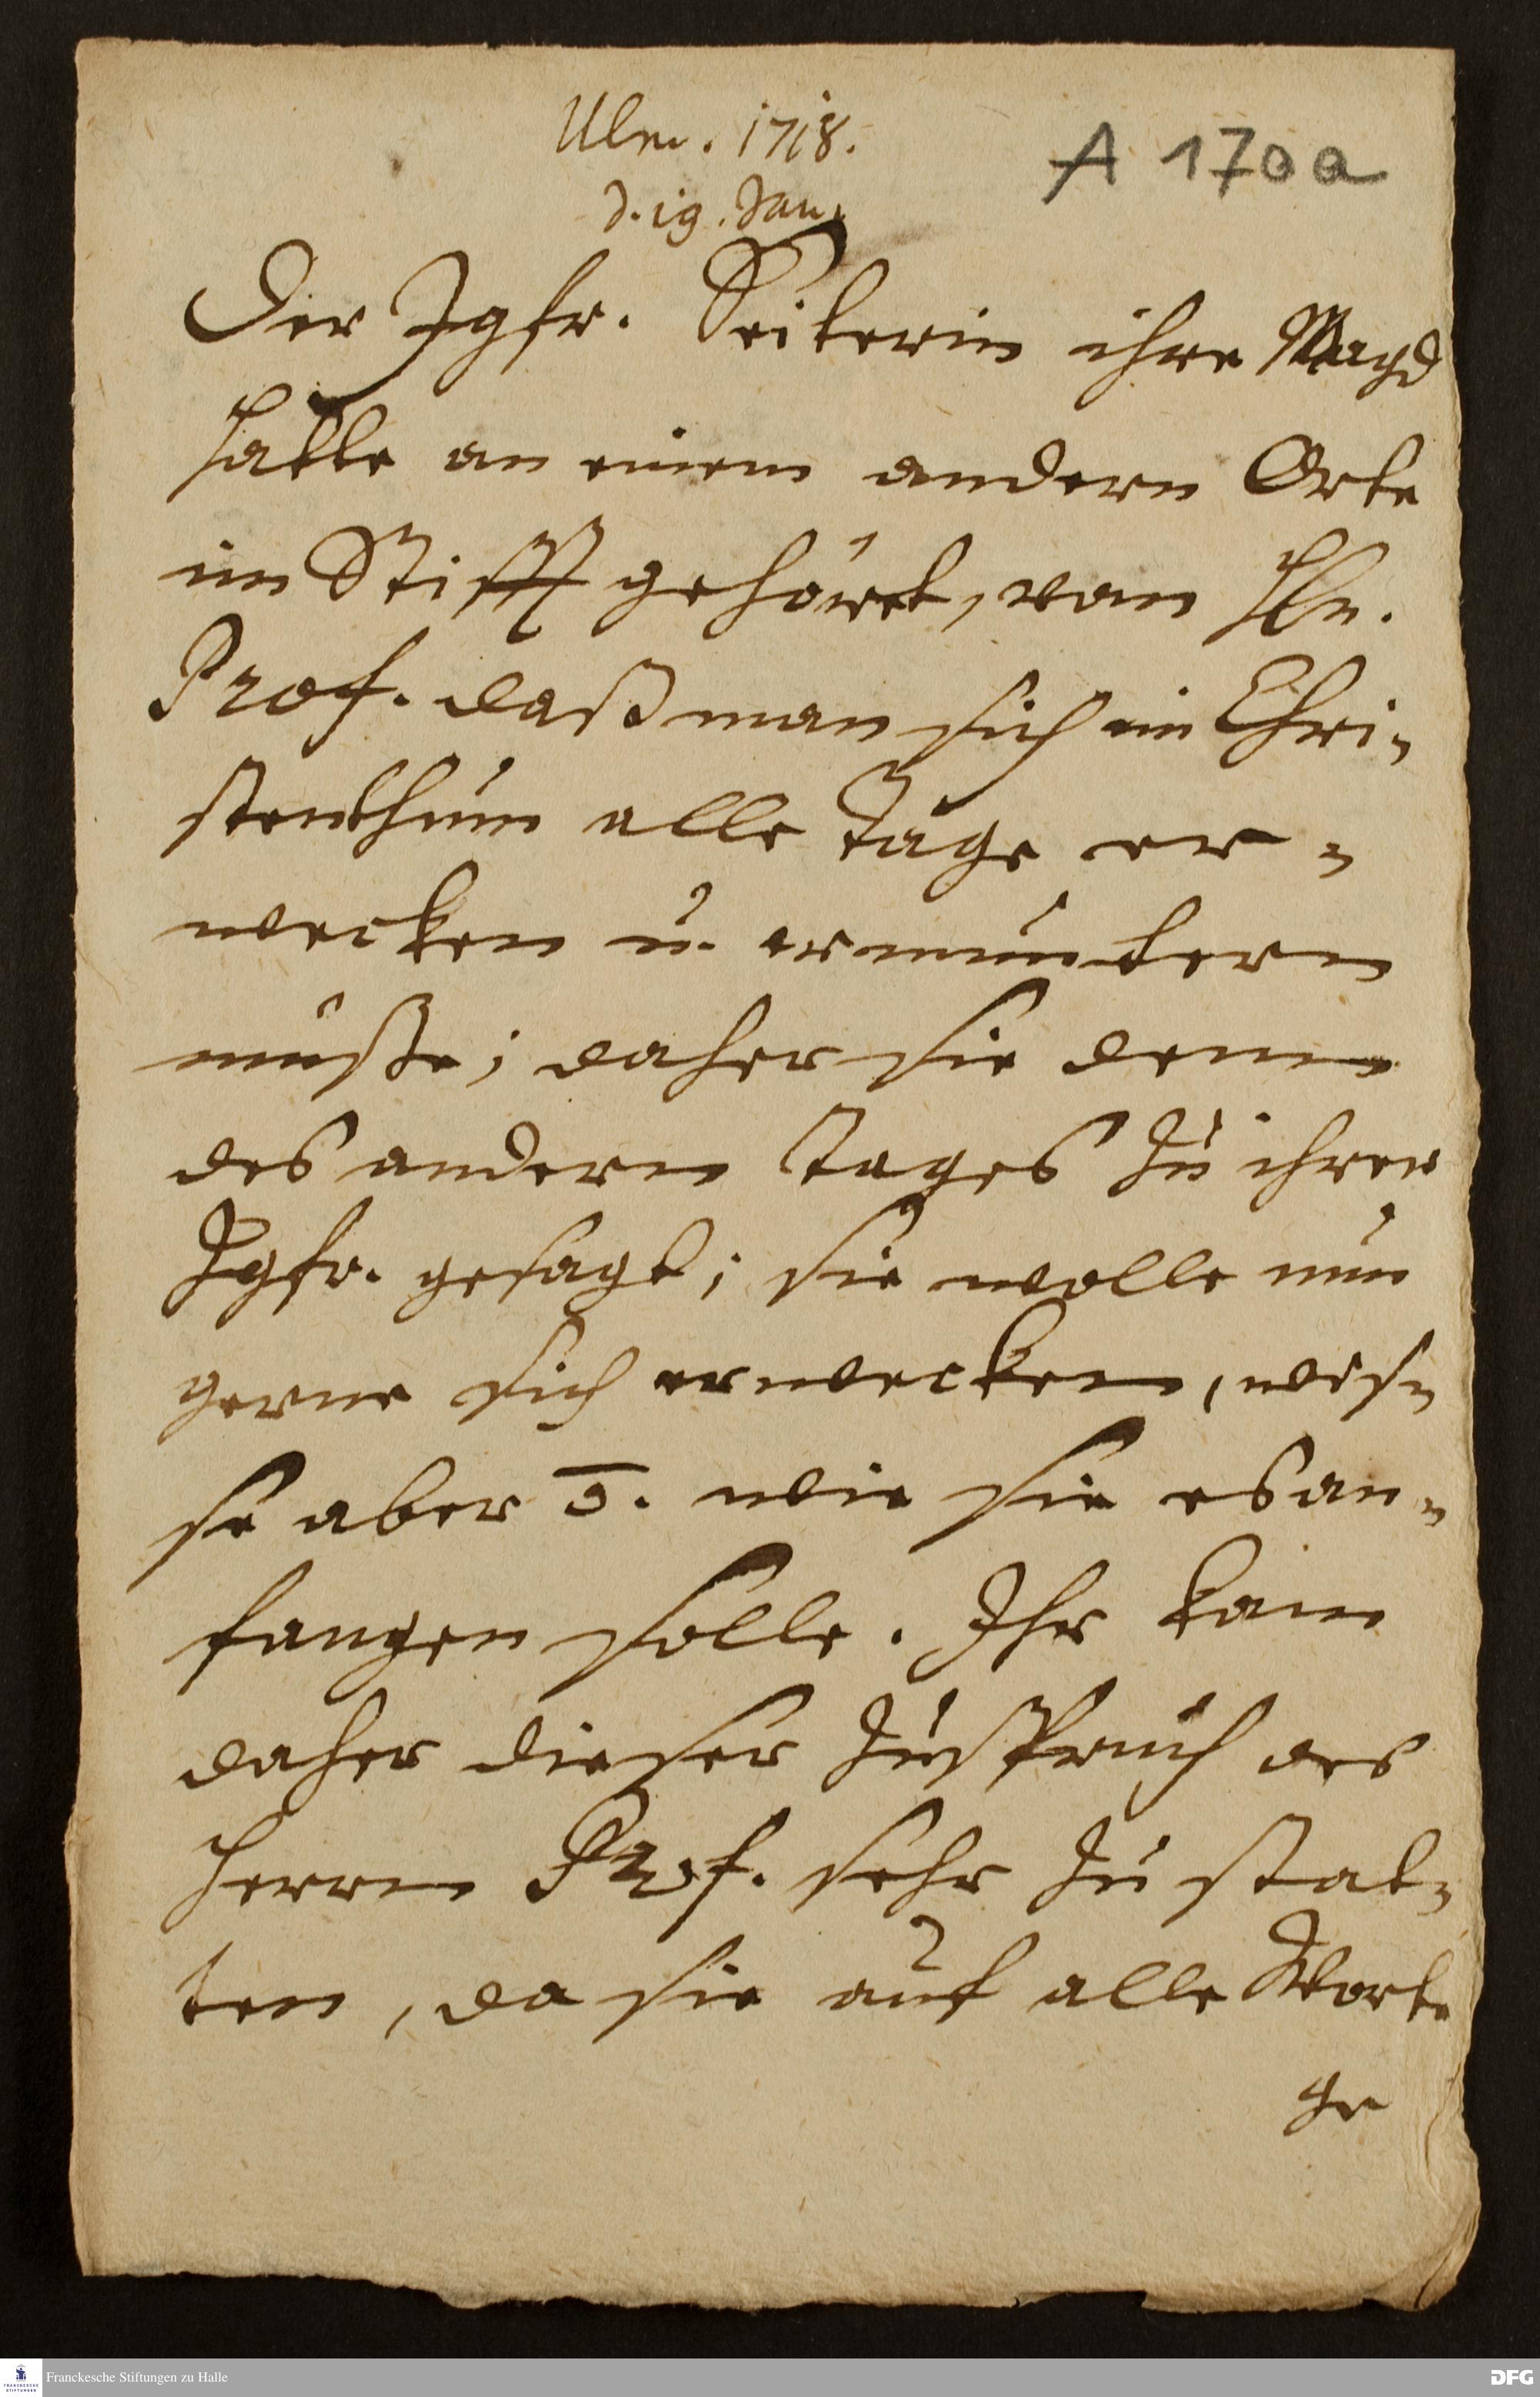 Ulm. 1718.
A 170a
d. 19. Jan.
Der Jgfr. Seiterin ihre Magd
hatte an einem andern Orte
im Stifft gehöret, vom Hn.
Prof. daß man sich im Chri-
stenthum alle Tage er-
wecken u. ermuntern
müsse; daher sie denn
des andern Tages zu ihrer
Jgfr. gesagt; sie wolle nun
gerne sich erwecken, wis-
se aber wie sie es an-
fangen solle. Ihr kam
daher dieser Zuspruch des
Herrn Prof. sehr zu stat-
ten, da sie auf alle Worte
ge
Franckesche Stiftungen zu Halle
FRANCKESCHE STIFTUNGEN
DFG